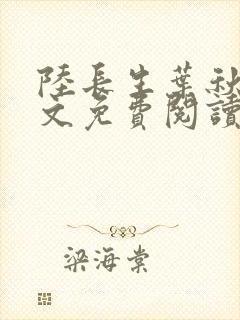 陸長生葉秋
文免費閱讀
梁海棠